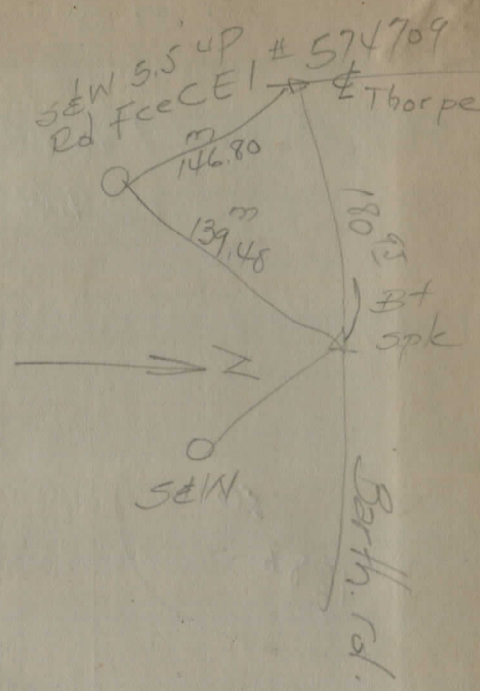 S&W 5.5 UP # 574709
Rd Fce CEI
℄ Thorpe
m
146.80
m
139.48
180.95
Bt
Spk
N
S&W.
Barth. rd.